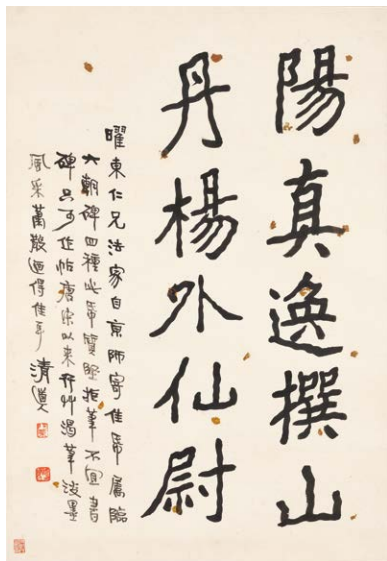 陽真逸撰山
丹楊外仙尉
曜東仁兄法家自京師寄佳帋屬臨
六朝碑四種此帋質堅拒筆不宜書
碑只可作帖唐宋以來行艸渴筆淡墨
風采蕭散迺得佳耳 清道人